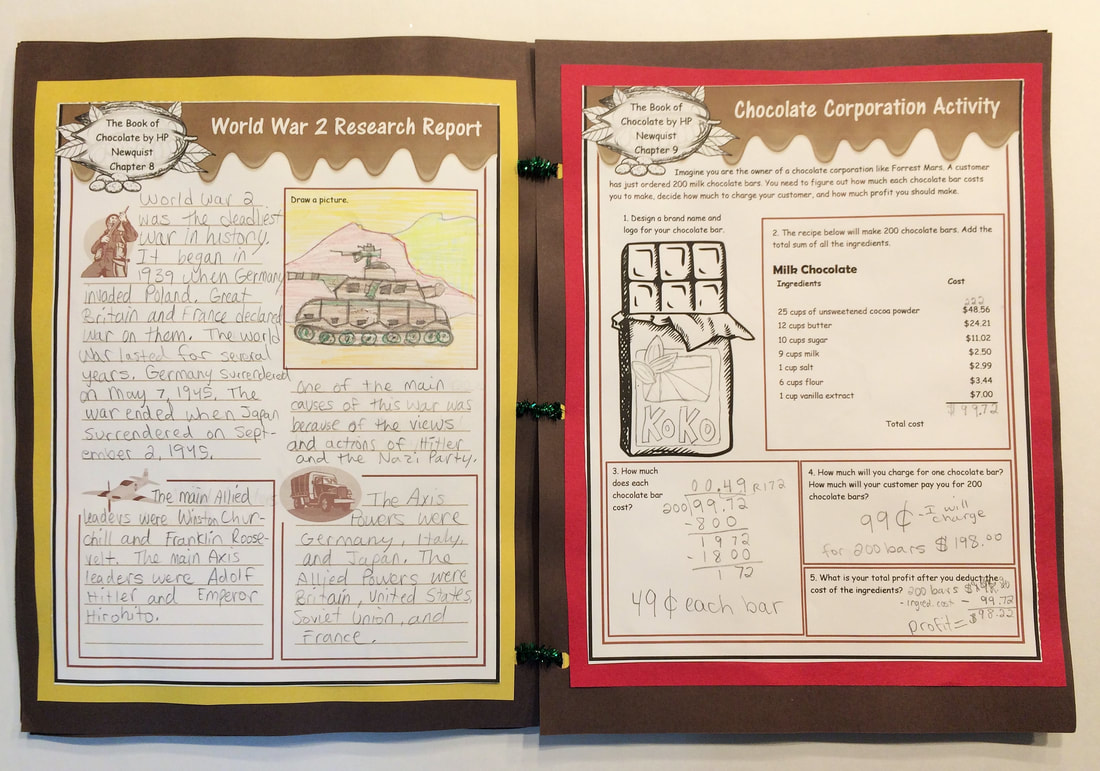 The Book of
Chocolate by HP
Newquist
Chapter 8
World War 2 Research Report
World War 2
was the deadliest
war in history.
It began in
1939 when Germany
invaded Poland. Great
Britain and France declared
war on them. The world
war lasted for several
years. Germany surrendered
on May 7, 1945. The
war ended when Japan
surrendered on Sept-
ember 2, 1945.
Draw a picture.
One of the main
causes of this war was
because of the views
and actions of Hitler
and the Nazi Party.
The main Allied
leaders were Winston Chur-
chill and Franklin Roose-
velt. The main Axis
leaders were Adolf
Hitler and Emperor
Hirohito.
The Axis
Powers were
Germany, Italy,
and Japan. The
Allied Powers were
Britain, United States,
Soviet Union, and
France.
The Book of
Chocolate by HP
Newquist
Chapter 9
Chocolate Corporation Activity
Imagine you are the owner of a chocolate corporation like Forrest Mars. A customer
has just ordered 200 milk chocolate bars. You need to figure out how much each chocolate bar costs
you to make, decide how much to charge your customer, and how much profit you should make.
1. Design a brand name and
logo for your chocolate bar.
KoKo
2. The recipe below will make 200 chocolate bars. Add the
total sum of all the ingredients.
Milk Chocolate
Ingredients Cost
222
25 cups of unsweetened cocoa powder $48.56
12 cups butter $24.21
10 cups sugar $11.02
9 cups milk $2.50
1 cup salt $2.99
6 cups flour $3.44
1 cup vanilla extract $7.00
$99.72
Total cost
3. How much
does each
chocolate bar
cost?
00.49 R172
200 99.72
-800
1972
-1800
172
49¢ each bar
4. How much will you charge for one chocolate bar?
How much will your customer pay you for 200
chocolate bars?
99¢ - I will
charge
for 200 bars $198.00
5. What is your total profit after you deduct the
cost of the ingredients? 200 bars
- ingred. cost - 99.72
profit = $98.22